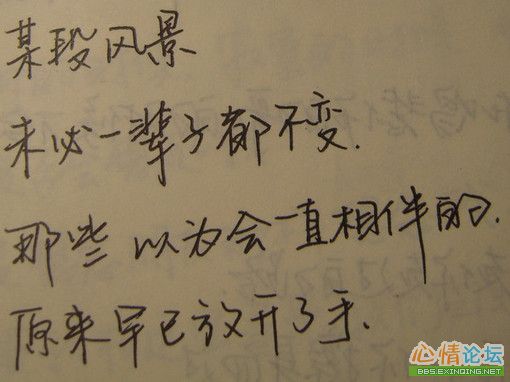 某段风景
未必一辈子都不变.
那些以为会一直相伴的.
原来早已放开了手.
心情论坛
BBS.EXINQING.NET